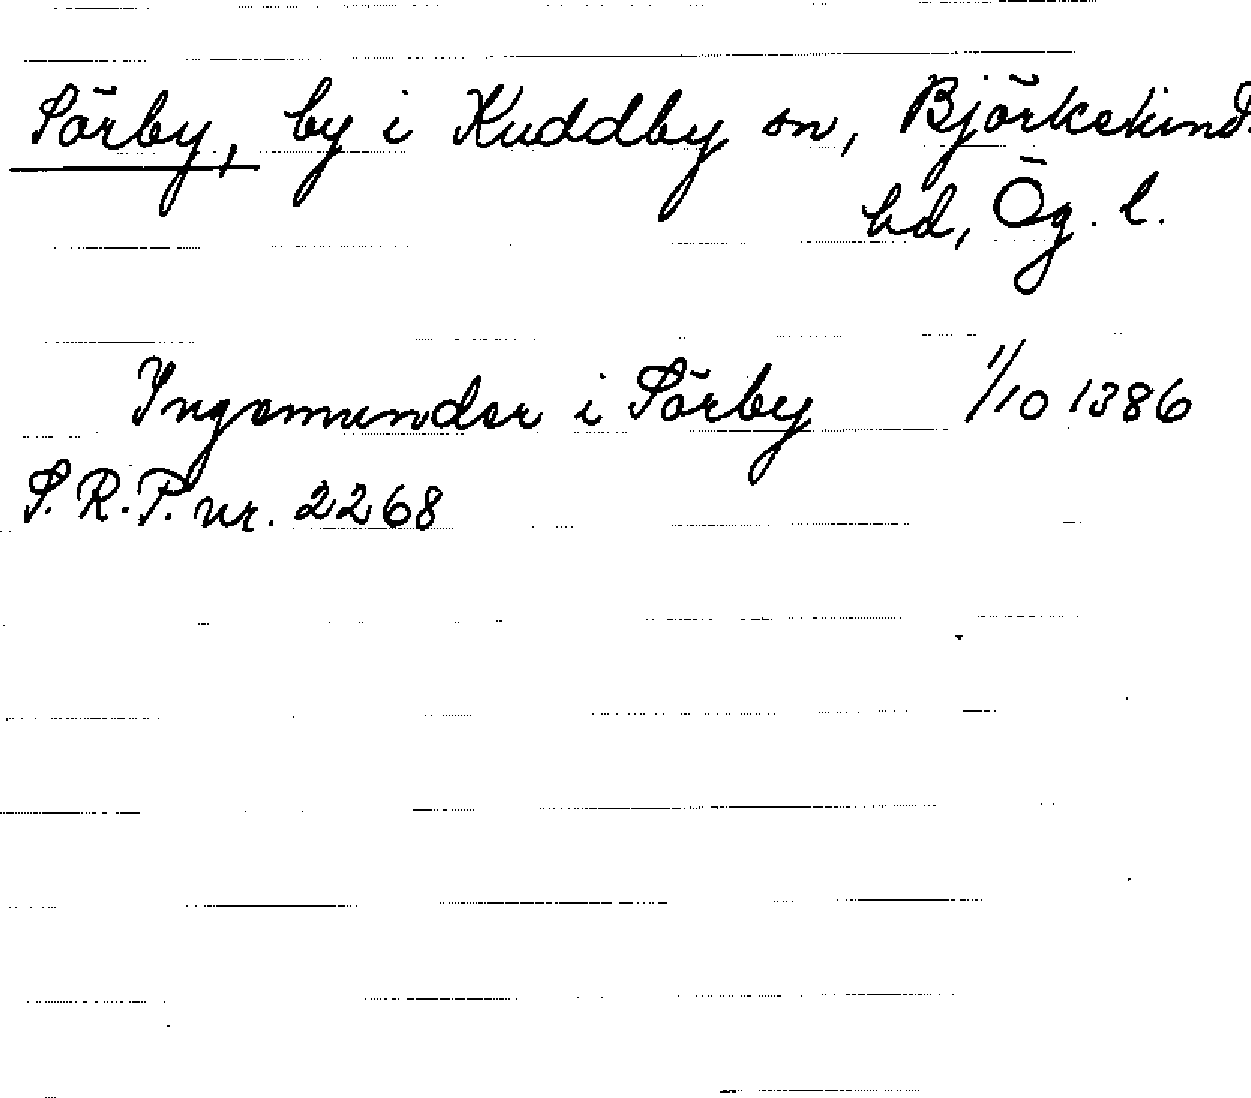 Sörby, by i Kuddby sn, Björkekind.
hd, Ög. l.
Ingemunder i Sörby 1/10 1386
S.R.P. nr. 2268